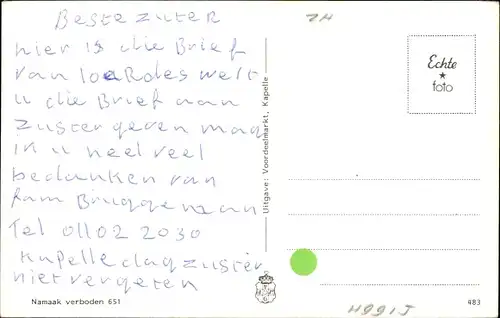 Beste zuter
hier is die Brief
van Loerdes welt
u die Brief aan
zuster geven mag
ik u heel veel
bedanken van
fam Bruggeman
Tel 01102 2030
Kapelle dag zuster
niet vergeten
Namaak verboden 651
Uitgave: Voordeelmarkt, Kapelle
Echte
foto
483
H991J